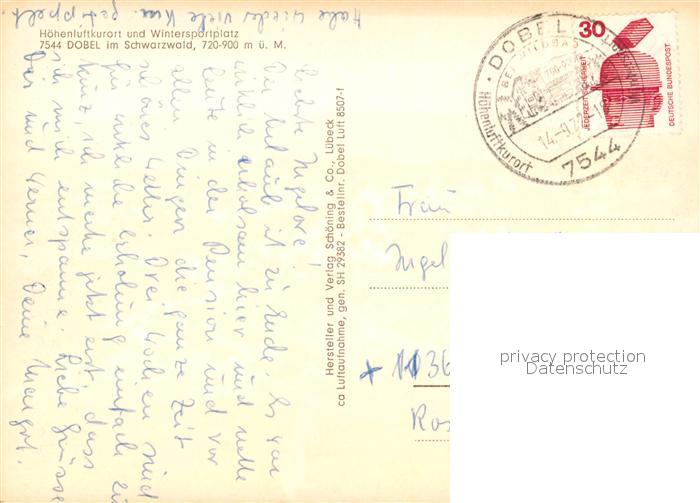 Habe wieder viele km. getippelt.
Höhenluftkurort und Wintersportplatz
7544 DOBEL im Schwarzwald, 720-900 m ü. M.
Liebe Ingelore!
Der Urlaub ist zu Ende. Es war
erholsam hier und nette
Leute in der Pension und vor
allen Dingen die ganze Zeit
schönes Wetter. Drei Wochen sind
für die Erholung einfach zu
kurz, ich merke jetzt erst, dass
ich mich entspanne. Liebe Grüsse
Dir und Werner, Deine Margot.
Hersteller und Verlag Schöning & Co., Lübeck
ca Luftaufnahme, gen. SH 29382 - Bestellnr. Dobel Luft 8507-f
DOBEL
Höhenluftkurort
7544
30
JEDERZEIT SICHERHEIT
DEUTSCHE BUNDESPOST
Frau
Ingel
Ros
privacy protection
Datenschutz